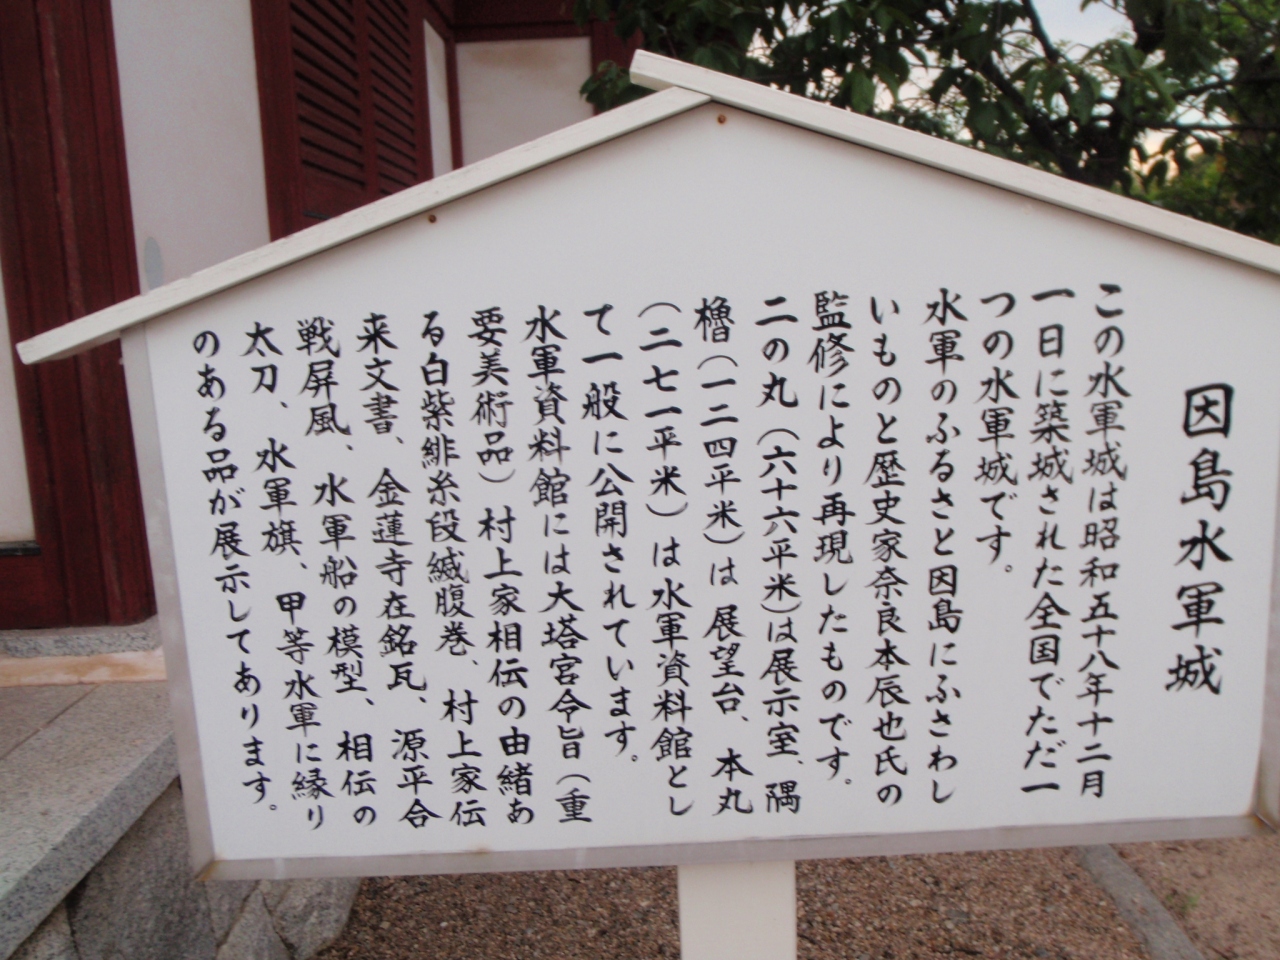 因島水軍城
この水軍城は昭和五十八年十二月
一日に築城された全国でただ一
つの水軍城です。
水軍のふるさと因島にふさわし
いものと歴史家奈良本辰也氏の
監修により再現したものです。
二の丸（六十六平米）は展示室、隅
櫓（一二四平米）は展望台、本丸
（二七一平米）は水軍資料館とし
て一般に公開されています。
水軍資料館には大塔宮令旨（重
要美術品）村上家相伝の由緒あ
る白紫緋糸段縅腹巻、村上家伝
来文書、金蓮寺在銘瓦、源平合
戦屏風、水軍船の模型、相伝の
太刀、水軍旗、甲等水軍に縁り
のある品が展示してあります。